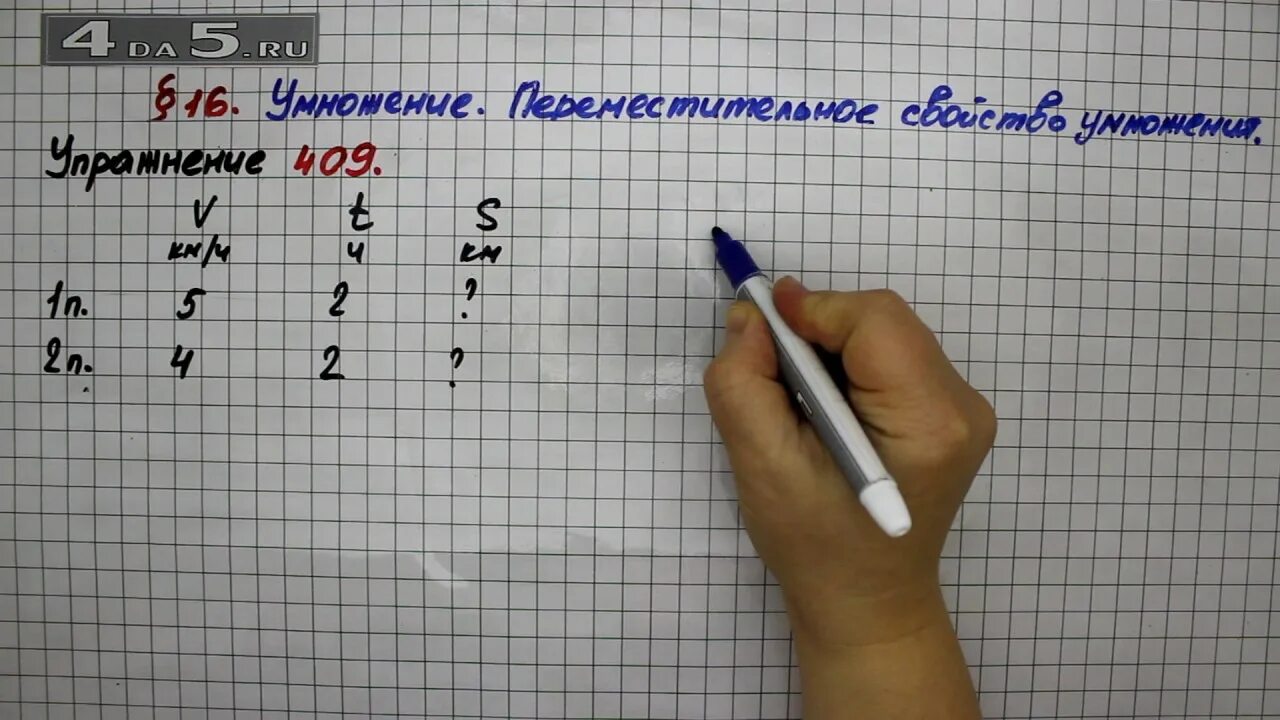 4DA5.RU
§ 16. Умножение. Переместительное свойство умножения.
Упражнение 409.
V t S
км/ч ч км
1п. 5 2 ?
2п. 4 2 ?